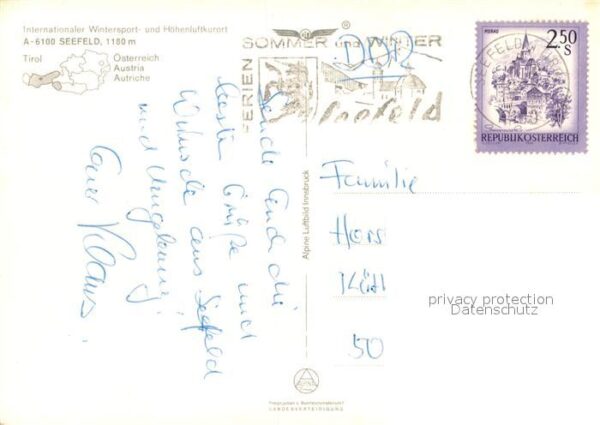 Internationaler Wintersport- und Höhenluftkurort
A-6100 SEEFELD, 1180 m
Tirol
Österreich
Austria
Autriche
FERIEN
SOMMER und WINTER
Seefeld
DDR
2.50
S
MURAU
REPUBLIK ÖSTERREICH
SEEFELD
Sende Euch die
besten Grüße und
Wünsche aus Seefeld
und Umgebung
Euer Klaus.
Alpine Luftbild Innsbruck
Familie
Hors
50
privacy protection
Datenschutz
ALPINE
Freigegeben v. Bundesministerium f.
LANDESVERTEIDIGUNG